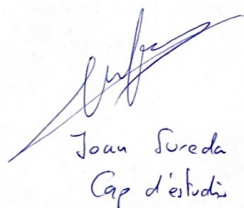 Joan Sureda
Cap d'estudis